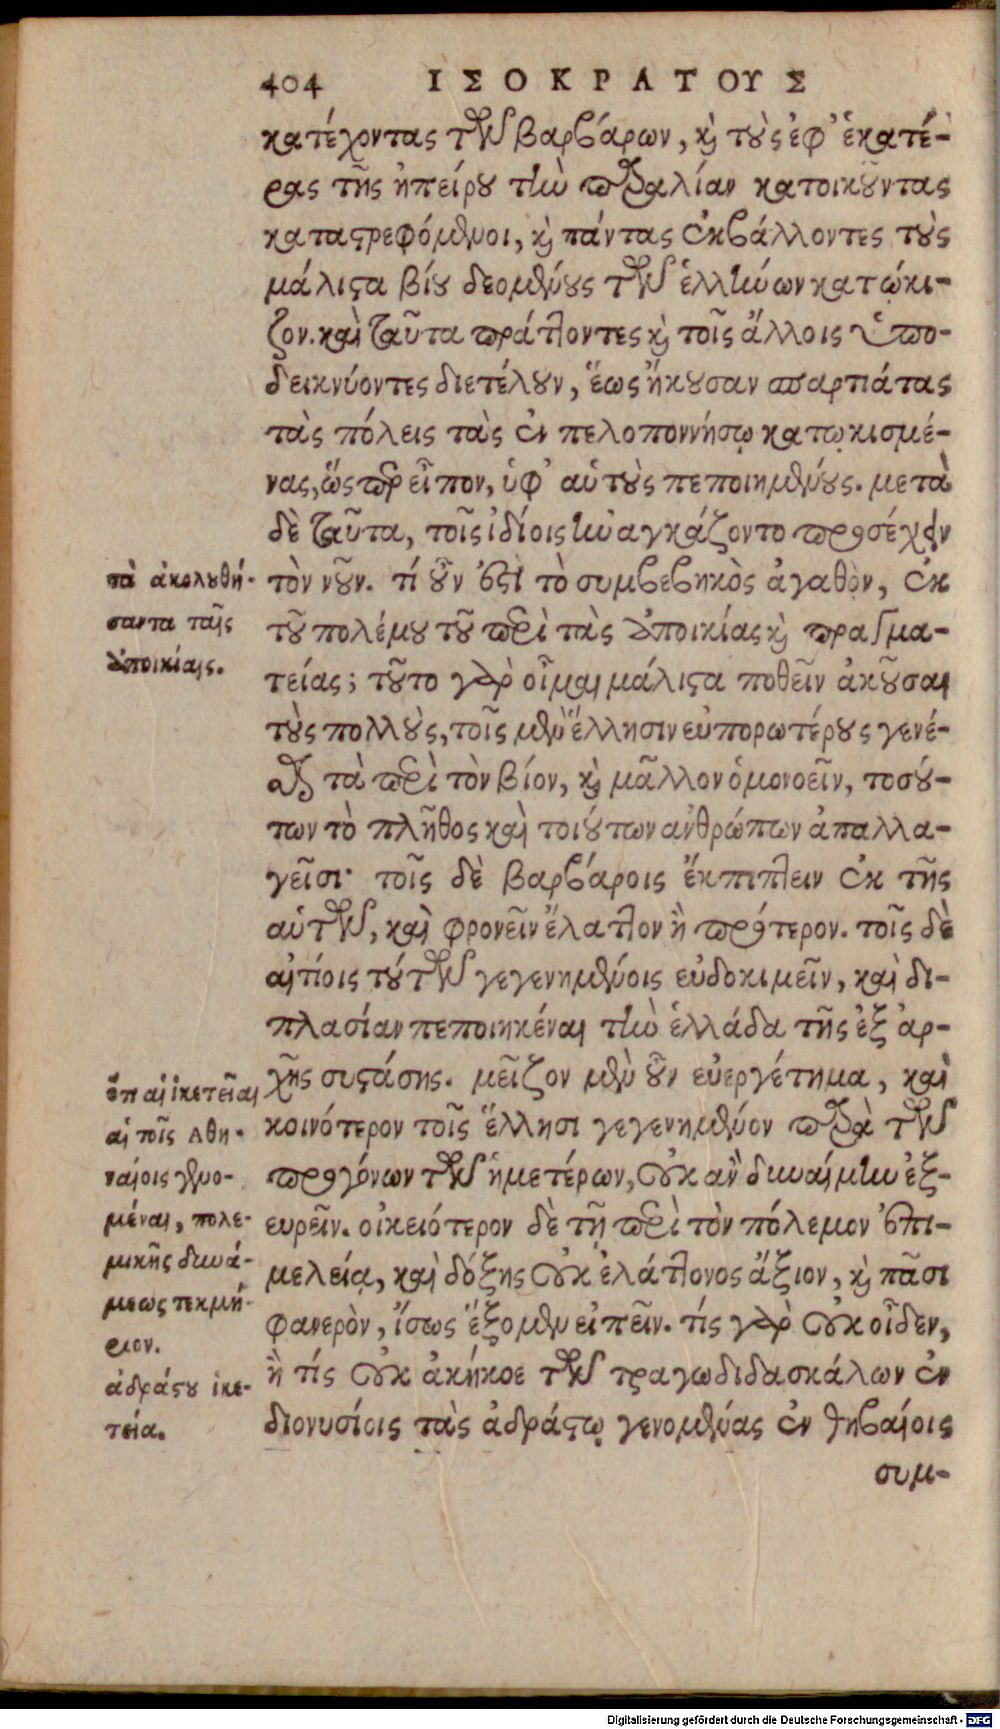 404 ΙΣΟΚΡΑΤΟΥΣ
κατέχοντας τῶν βαρβάρων, καὶ τοὺς ἐφ' ἑκατέ-
ρας τῆς ἠπείρου τὴν παραλίαν κατοικοῦντας
καταστρεφόμενοι, καὶ πάντας ἐκβάλλοντες τοὺς
μάλιστα βίου δεομένους τῶν ἑλλήνων κατῴκι-
ζον. καὶ ταῦτα πράττοντες καὶ τοῖς ἄλλοις ὑπο-
δεικνύοντες διετέλουν, ἕως ἤκουσαν σπαρτιάτας
τὰς πόλεις τὰς ἐν πελοποννήσῳ κατῳκισμέ-
νας, ὥσπερ εἶπον, ὑφ' αὑτοὺς πεποιημένους. μετὰ
δὲ ταῦτα, τοῖς ἰδίοις ἠναγκάζοντο προσέχειν
τὸν νοῦν. τί οὖν ἐστὶ τὸ συμβεβηκὸς ἀγαθὸν, ἐκ
τοῦ πολέμου τοῦ περὶ τὰς ἀποικίας καὶ πραγμα-
τείας; τοῦτο γὰρ οἶμαι μάλιστα ποθεῖν ἀκοῦσαι
τοὺς πολλοὺς, τοῖς μὲν ἕλλησιν εὐπορωτέρους γενέ-
σθαι τὰ περὶ τὸν βίον, καὶ μᾶλλον ὁμονοεῖν, τοσού-
των τὸ πλῆθος καὶ τοιούτων ἀνθρώπων ἀπαλλα-
γεῖσι· τοῖς δὲ βαρβάροις ἐκπίπτειν ἐκ τῆς
αὑτῶν, καὶ φρονεῖν ἔλαττον ἢ πρότερον. τοῖς δὲ
αἰτίοις τούτων γεγενημένοις εὐδοκιμεῖν, καὶ δι-
πλασίαν πεποιηκέναι τὴν ἑλλάδα τῆς ἐξ ἀρ-
χῆς συστάσης. μεῖζον μὲν οὖν εὐεργέτημα, καὶ
κοινότερον τοῖς ἕλλησι γεγενημένον παρὰ τῶν
προγόνων τῶν ἡμετέρων, οὐκ ἂν δυναίμην ἐξ-
ευρεῖν. οἰκειότερον δὲ τῇ περὶ τὸν πόλεμον ἐπι-
μελείᾳ, καὶ δόξης οὐκ ἐλάττονος ἄξιον, καὶ πᾶσι
φανερὸν, ἴσως ἕξομεν εἰπεῖν. τίς γὰρ οὐκ οἶδεν,
ἢ τίς οὐκ ἀκήκοε τῶν τραγῳδιδασκάλων ἐν
διονυσίοις τὰς ἀδράστῳ γενομένας ἐν θηβαίοις
συμ-
τὰ ἀκολουθή-
σαντα ταῖς
ἀποικίαις.
ὅτι αἱ ἱκετεῖαι
αἱ τοῖς Αθη-
ναίοις γενο-
μέναι, πολε-
μικῆς δυνά-
μεως τεκμή-
ριον.
ἀδράστου ἱκε-
τεία.
Digitalisierung gefördert durch die Deutsche Forschungsgemeinschaft - DFG